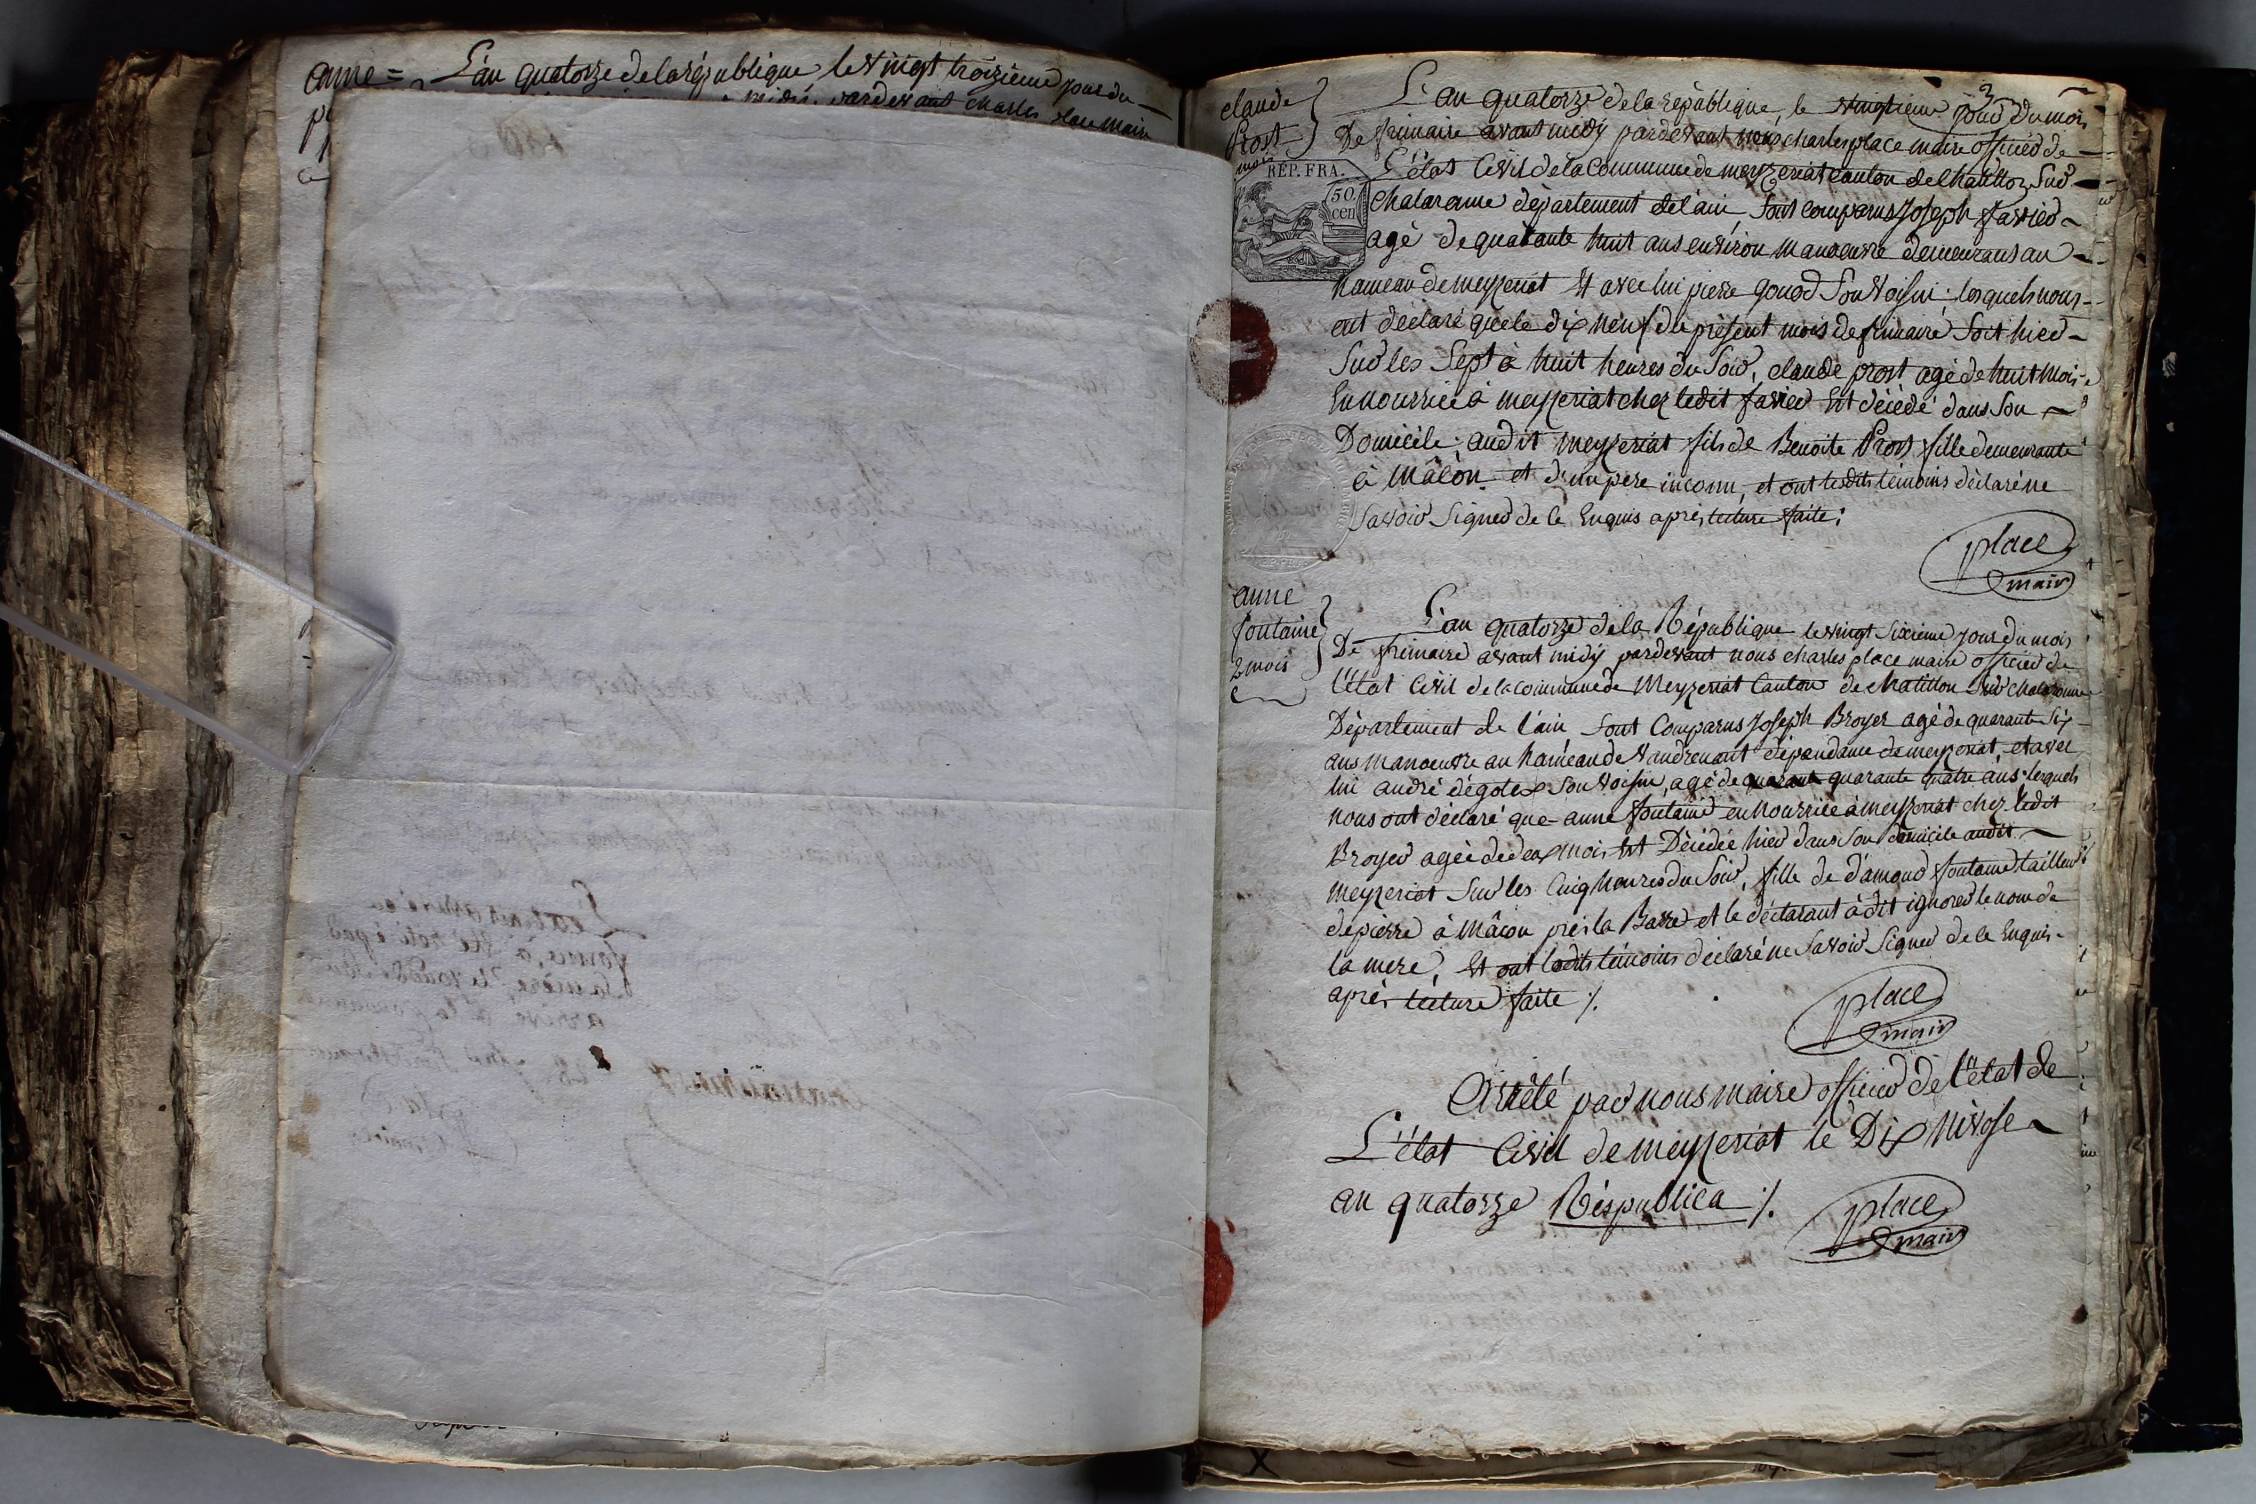 anne =
L'an quatorze de la république le vingt troisieme jour du
midi, pardevant charles place maire
claude
Prost
mois
REP. FRA.
50
cen
3
L'an quatorze de la république, le vingtieme jour du mois
De frimaire avant midÿ pardevant nous charles place maire officier de
L'état Civil de la Commune de meyzeriat Canton de Chatillon Sur
Chalaronne département de l'ain Sont comparus Joseph favier
agé de quarante huit ans environ manoeuvre demeurant au
hameau de meyzeriat Et avec lui pierre gonod Son Voisin; lesquels nous
ont déclaré que le dix neuf du présent mois de frimaire Soit hier
Sur les Sept à huit heures du Soir, claude prost agé de huit mois
En nourrice à meyzeriat chez ledit favier Est décédé dans Son
Domicile; audit meyzeriat fils de Benoite Prost fille demeurante
à Mâcon et d'un pere inconnu, et ont lesdits témoins déclaré ne
Savoir Signer de ce Enquis après lecture faite;
place
maire
anne
fontaine
2 mois
L'an quatorze de la République le vingt Sixieme jour du mois
De frimaire avant midÿ pardevant nous charles place maire officier de
l'état Civil de la commune de Meyzeriat Canton de chatillon Sur chalaronne
Département de l'ain Sont Comparus Joseph Broyer agé de quarante Six
ans manoeuvre au hameau de Vandrenant dépendance de meyzeriat, et avec
lui andré dégolex Son Voisin, agé de quarant quarante quatre ans lesquels
nous ont déclaré que anne fontaine en nourrice à meyzeriat chez ledit
Broyer agée de deux mois Est Décédée hier dans Son domicile audit
meyzeriat Sur les Cinq heures du Soir, fille de d'amond fontaine tailleur
de pierre à Mâcon près la Barre et le déclarant à dit ignorer le nom de
la mere; Et ont lesdits témoins déclaré ne Savoir Signer de ce Enquis
après lecture faite ./.
place
maire
Arrêté par nous maire officier de l'état de
L'état Civil de meyzeriat le Dix Nivose
an quatorze Réspublica ./.
place
maire